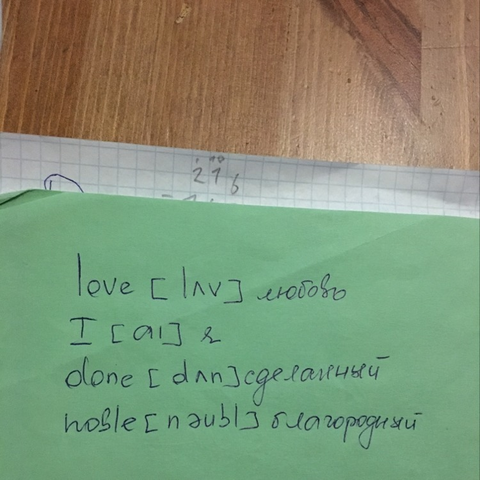 216
love [lʌv] любовь
I [aı] я
done [dʌn] сделанный
noble [nəubl] благородный